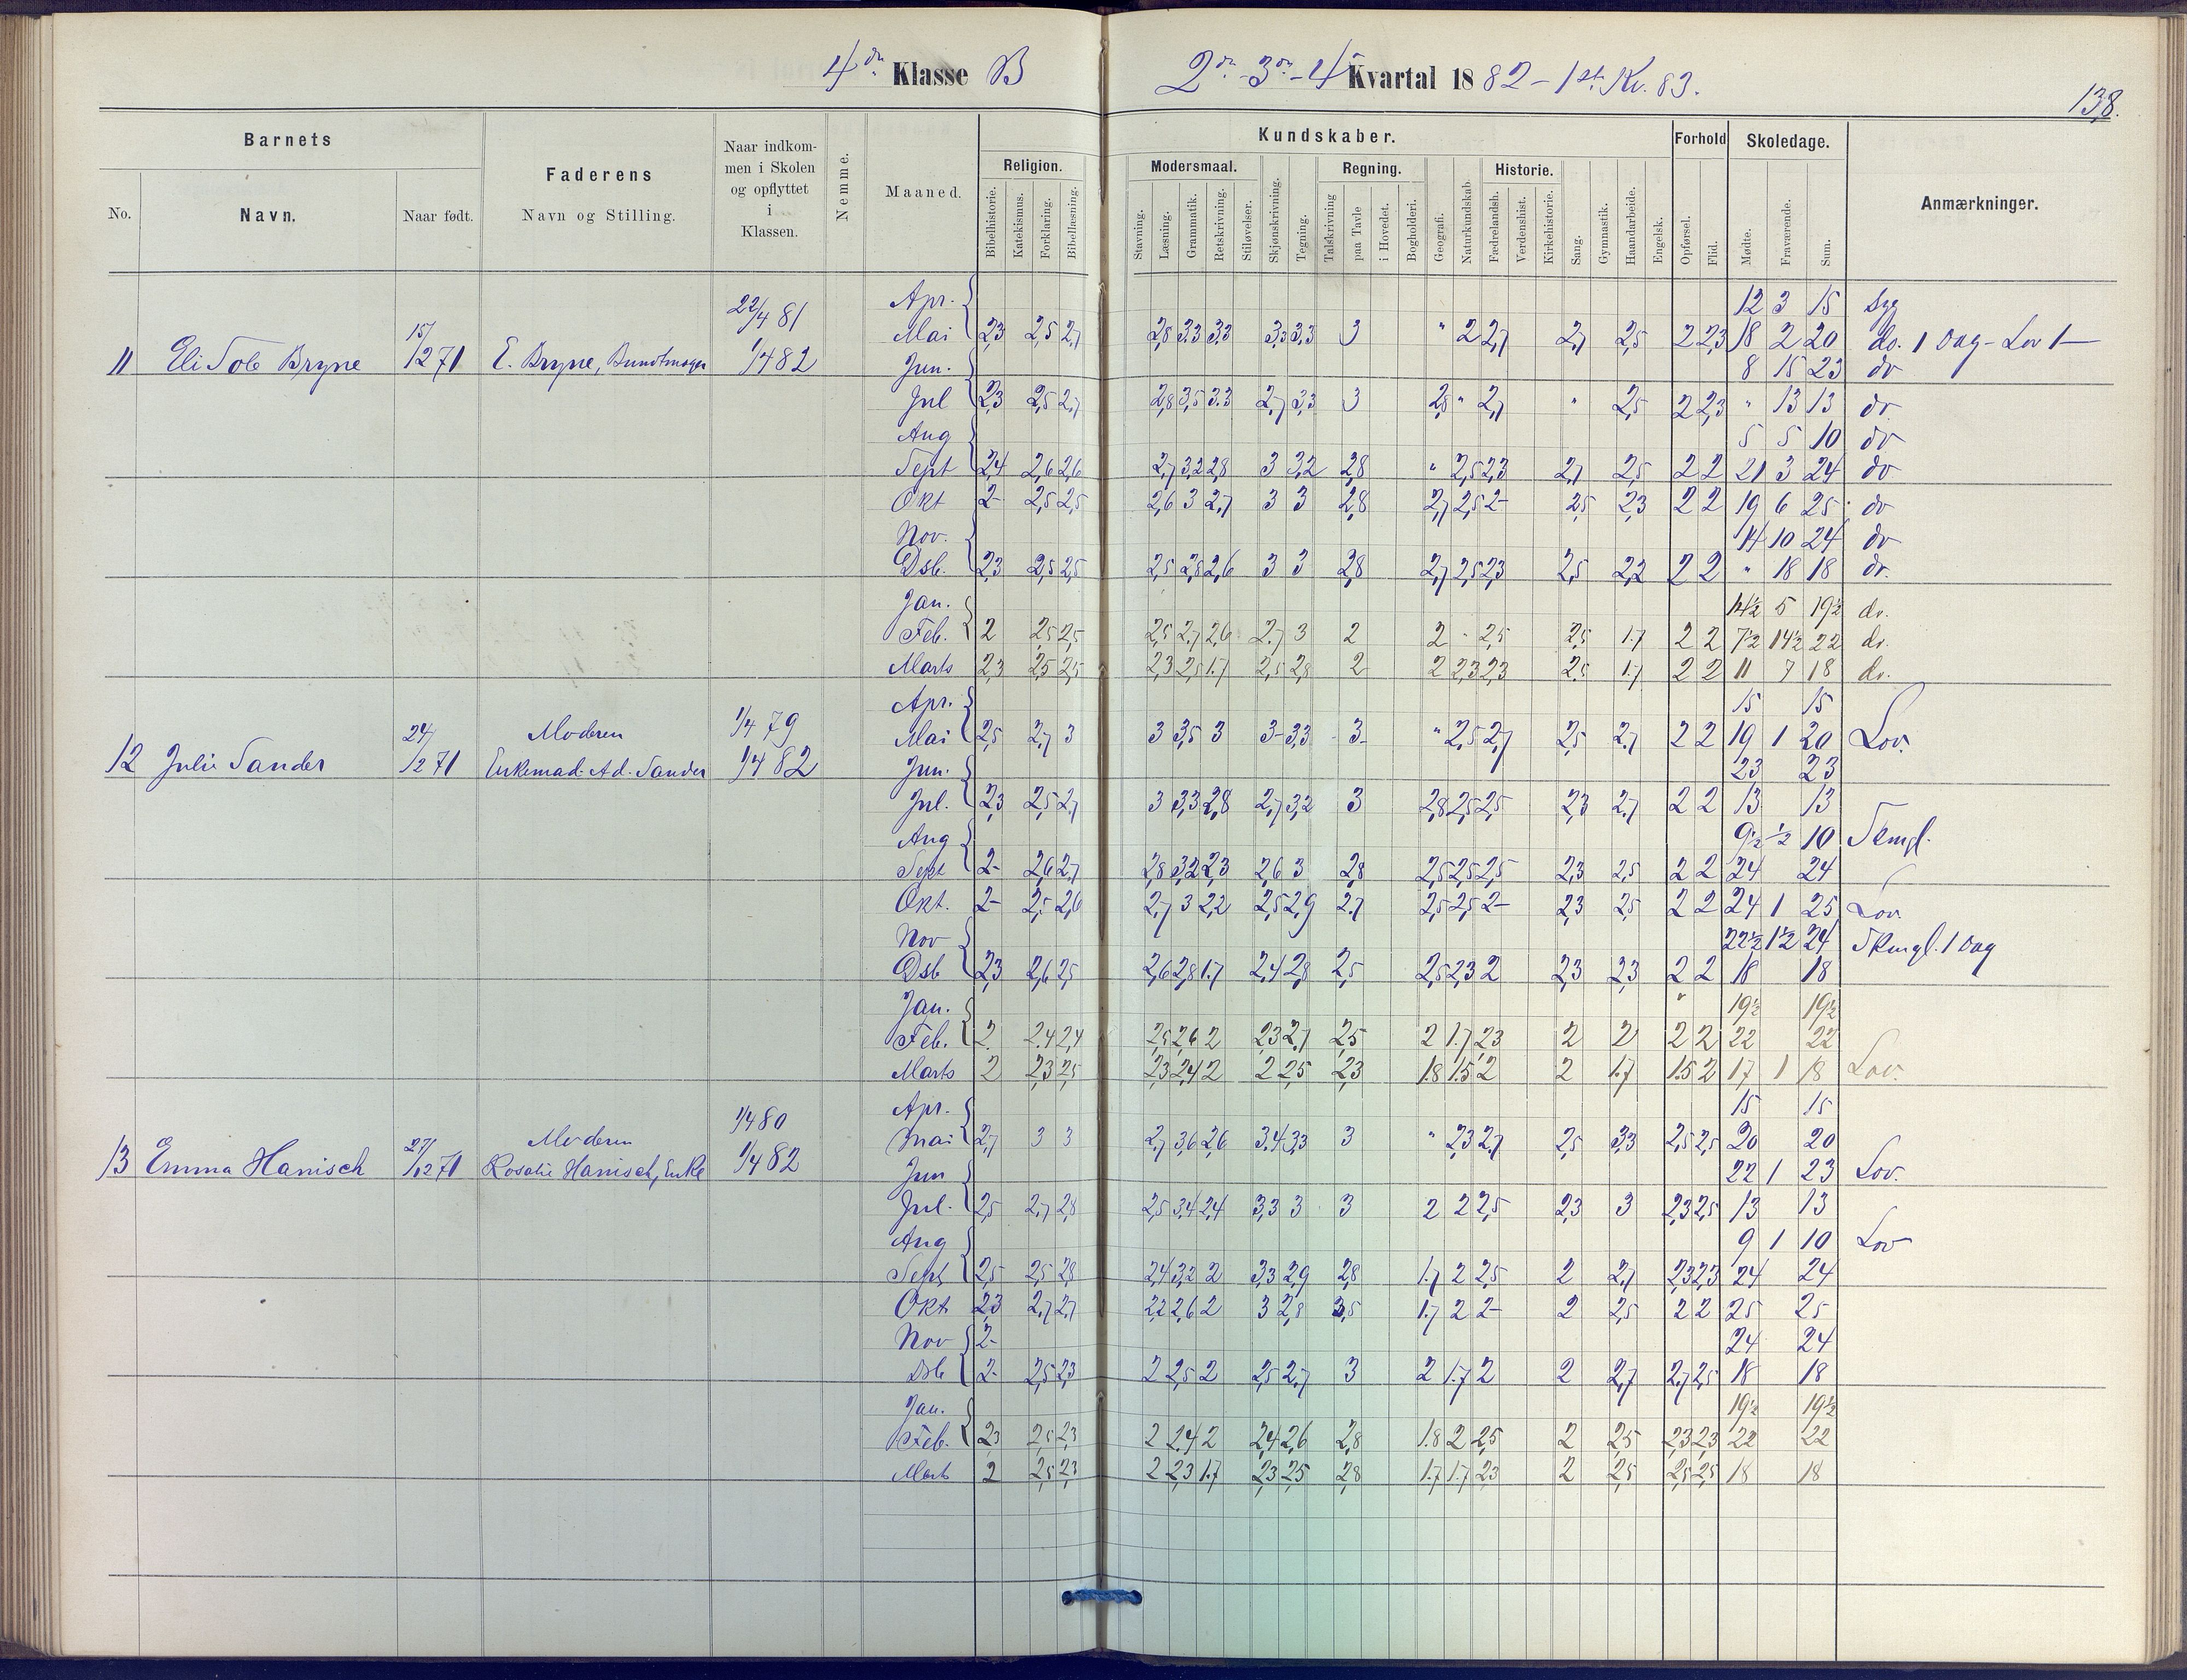 4de Klasse B
2den-3de-4 Kvartal 1882-1st. Kv. 83.
138.
Barnets
Faderens
Naar indkommen i Skolen og opflyttet i Klassen.
Nemme.
Maaned.
Kundskaber.
Forhold
Skoledage.
Anmærkninger.
No. Navn. Naar født. Navn og Stilling.
Religion. Modersmaal. Regning. Historie.
Bibelhistorie. Katekismus. Forklaring. Bibellæsning. Stavning. Læsning. Grammatik. Retskrivning. Stiløvelser. Skjønskrivning. Tegning. Talskrivning paa Tavle i Hovedet. Bogholderi. Geografi. Naturkundskab. Fædrelandsh. Verdenshist. Kirkehistorie. Sang. Gymnastik. Haandarbeide. Engelsk. Opførsel. Flid. Mødte. Fraværende. Sum.
22/4 81
Apr. 12 3 15 Syg
Mai 2,3 2,5 2,7 2,8 3.3 3.3 3,3 3,3 3 " 2 2,7 2,7 2,5 2 2,3 18 2 20 do. 1 Dag - Lov 1 —
11 Eli Bryne 15/12 71 E. Bryne, Buntmager 1/4 82
Jun. 8 15 23 do
Jul 2,3 2,5 2,7 2,8 3,5 3.3 2,7 3,3 3 2,8 " 2,7 " 2,5 2 2,3 " 13 13 do
Aug 5 5 10 do
Sept 2,4 2,6 2,6 2,7 3,2 2,8 3 3,2 2,8 " 2,5 2,3 2,7 2,5 2 2 21 3 24 do
Okt 2- 2,5 2,5 2,6 3 2,7 3 3 2,8 2,7 2,5 2- 2,5 2,3 2 2 19 6 25 do
Nov. 14 10 24 do
Dsb. 2,3 2,5 2,5 2,5 2,8 2,6 3 3 2,8 2,7 2,5 2,3 2,5 2,2 2 2 " 18 18 do.
Jan. 14½ 5 19½ do.
Feb. 2 2,5 2,5 2,5 2,7 2,6 2,7 3 2 2 " 2,5 2,5 1.7 2 2 7½ 14½ 22 do.
Marts 2,3 2,5 2,5 2,3 2,5 1.7 2,5 2,8 2 2 2,3 2,3 2,5 1.7 2 2 11 7 18 do.
Apr. 15 15
Moderen 1/4 79
Mai 2,5 2,7 3 3 3,5 3 3- 3,3 3- " 2,5 2,7 2,5 2,7 2 2 19 1 20 Lov.
12 Julie Sander 24/12 71 Enkemad. Ad. Sander 1/4 82
Jun. 23 23
Jul. 2,3 2,5 2,7 3 3,3 2,8 2,7 3,2 3 2,8 2,5 2,5 2,3 2,7 2 2 13 13
Aug 9½ ½ 10
Sept 2- 2,6 2,7 2,8 3,2 2,3 2,6 3 2,8 2,5 2,5 2,5 2,3 2,5 2 2 24 24
Okt. 2- 2,5 2,6 2,7 3 2,2 2,5 2,9 2,7 2,5 2,5 2- 2,3 2,5 2 2 24 1 25 Lov
Nov 22½ 1½ 24 1 Dag
Dsb 2,3 2,6 2,5 2,6 2,8 1.7 2,4 2,8 2,5 2,5 2,3 2 2,3 2,3 2 2 18 18
Jan. 19½ 19½
Feb. 2 2,4 2,4 2,5 2,6 2 2,3 2,7 2,5 2 1.7 2,3 2 2 2 2 22 22
Marts 2 2,3 2,5 2,3 2,4 2 2 2,5 2,3 1.8 1.5 2 2 1.7 1.5 2 17 1 18 Lov.
Apr. 15 15
1/4 80
Moderen
Mai 2,7 3 3 2,7 3,6 2,6 3,4 3,3 3 " 2,3 2,7 2,5 3,3 2,5 2,5 20 20
13 Emma Hanisch 27/12 71 Rosalie Hanisch, Enke 1/4 82
Jun 22 1 23 Lov.
Jul. 2,5 2,7 2,8 2,5 3,4 2,4 3,3 3 3 2 2 2,5 2,3 3 2,3 2,5 13 13
Aug 9 1 10 Lov
Sept 2,5 2,5 2,8 2,4 3,2 2 3,3 2,9 2,8 1.7 2 2,5 2 2,7 2,3 2,3 24 24
Okt 2,3 2,7 2,7 2,2 2,6 2 3 2,8 3,5 1.7 2 2- 2 2,5 2 2 25 25
Nov 2- 24 24
Dsb 2- 2,5 2,3 2 2,5 2 2,5 2,7 3 2 1.7 2 2 2,7 2,7 2,5 18 18
Jan. 19½ 19½
Feb. 2,3 2,5 2,3 2 2,4 2 2,4 2,6 2,8 1.8 2 2,5 2 2,5 2,3 2,3 22 22
Marts 2 2,5 2,3 2 2,3 1.7 2,3 2,5 2,8 1.7 1.7 2,3 2 2,5 2,5 2,5 18 18